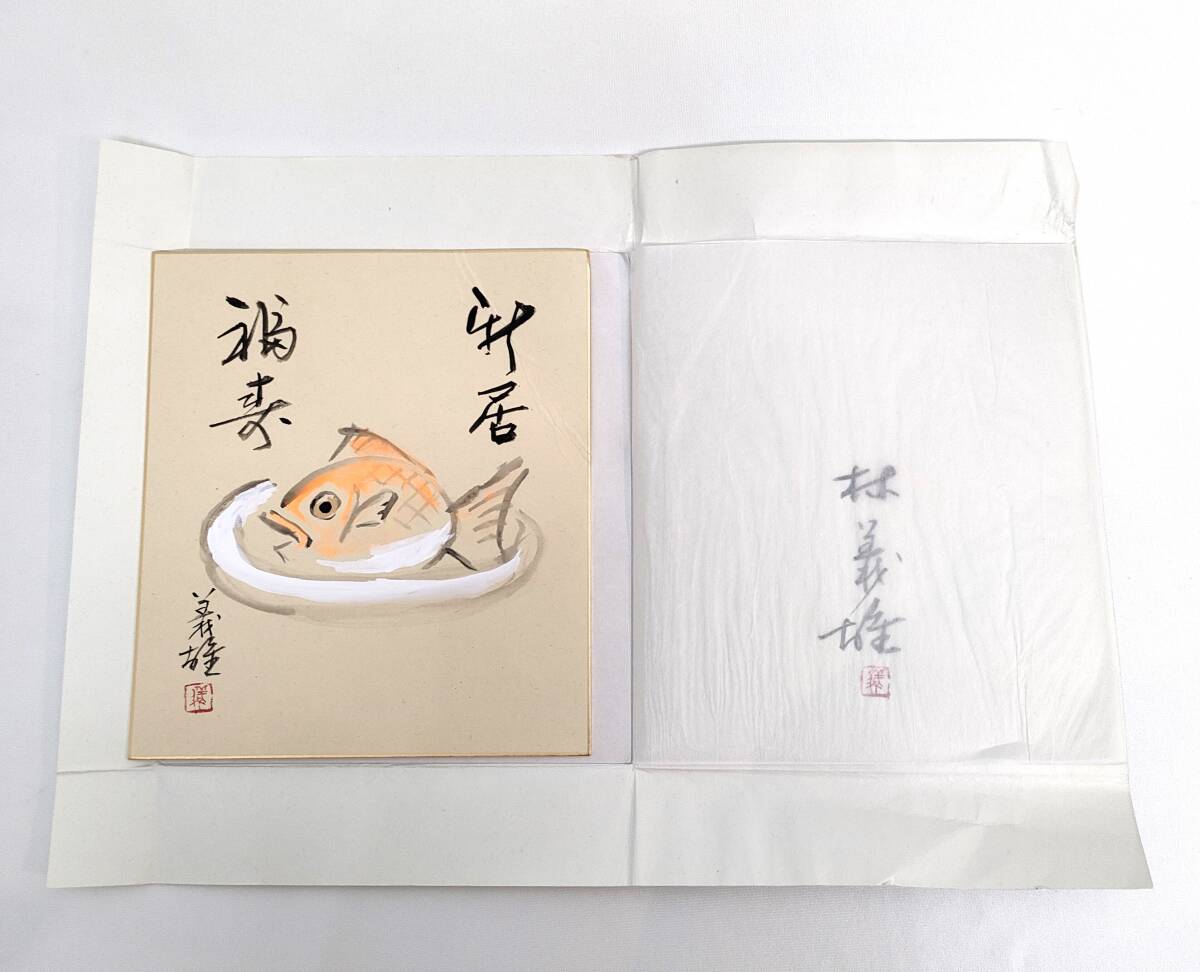 新居
福寿
義雄
林義雄